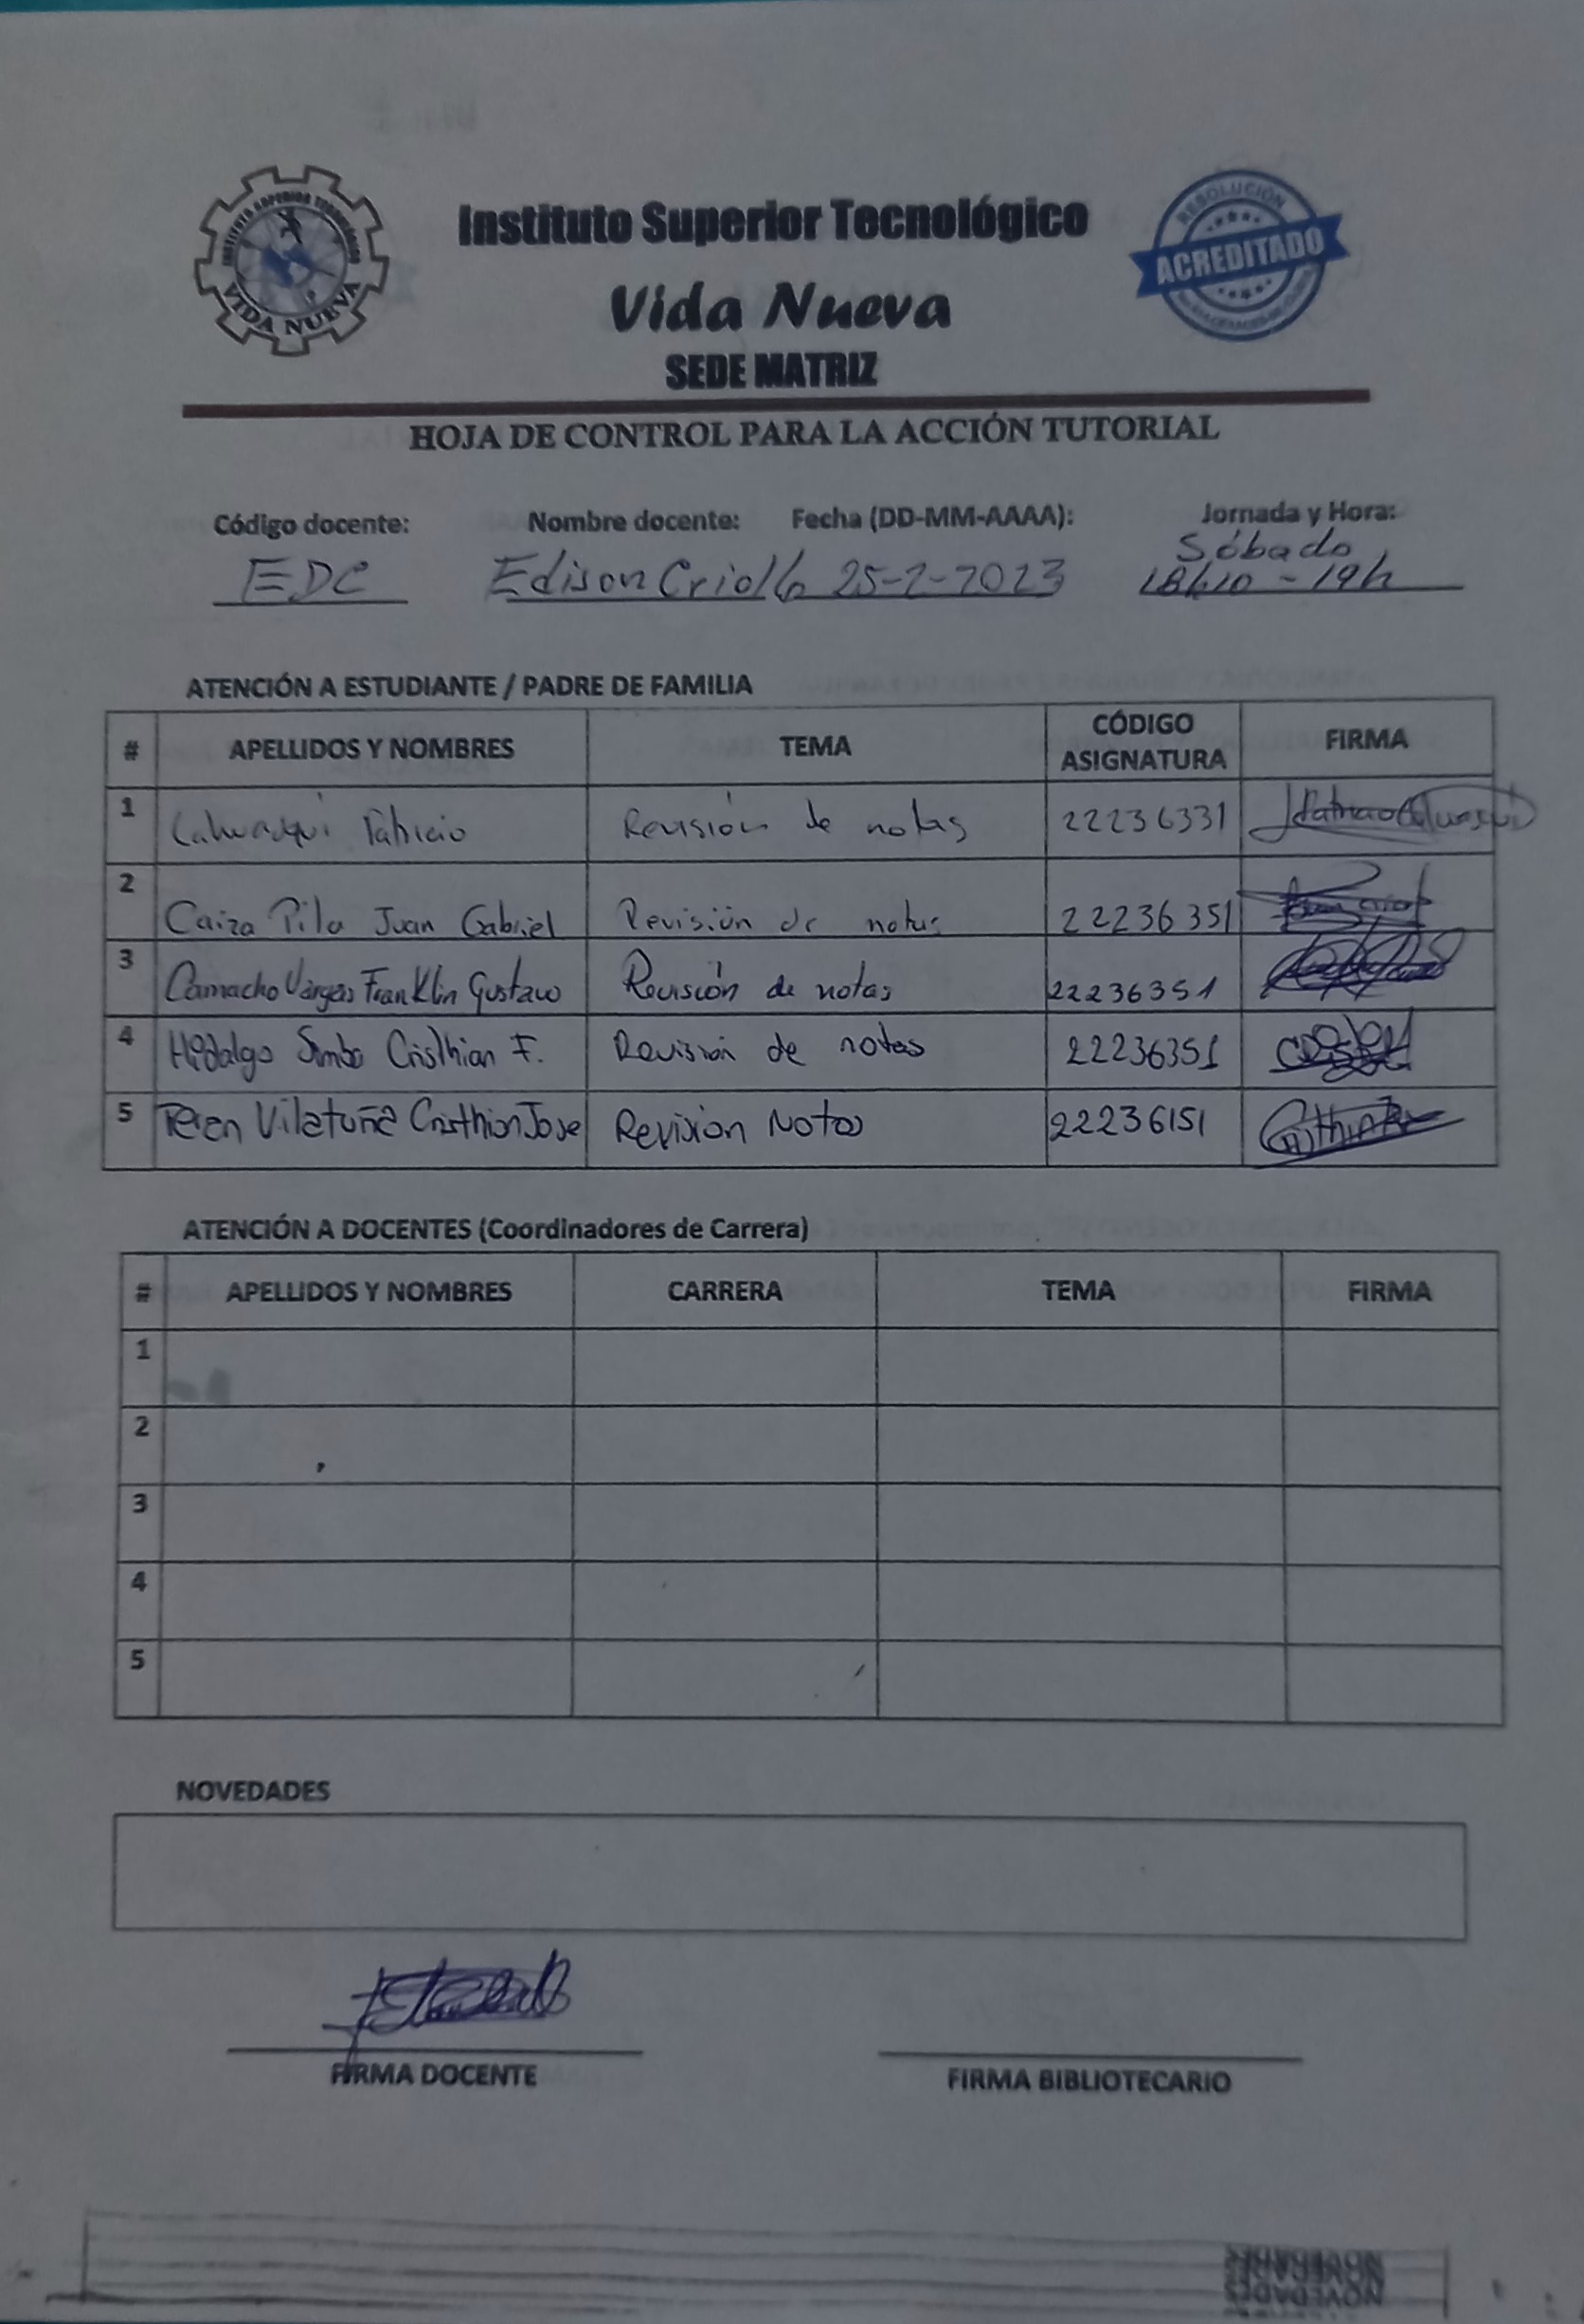 INSTITUTO SUPERIOR TECNOLÓGICO
VIDA NUEVA
Instituto Superior Tecnológico
Vida Nueva
SEDE MATRIZ
RESOLUCIÓN
ACREDITADO
HOJA DE CONTROL PARA LA ACCIÓN TUTORIAL
Código docente: Nombre docente: Fecha (DD-MM-AAAA): Jornada y Hora:
EDC Edison Criollo 25-2-2023 Sábado
18h10 - 19h
ATENCIÓN A ESTUDIANTE / PADRE DE FAMILIA
# APELLIDOS Y NOMBRES TEMA CÓDIGO ASIGNATURA FIRMA
1 Patricio Revisión de notas 22236331
2 Caiza Pila Juan Gabriel Revisión de notas 22236351
3 Camacho Vargas Franklin Gustavo Revisión de notas 22236351
4 Hidalgo Cristhian F. Revisión de notas 22236351
5 Vilatuña Cristhian Jose Revisión Notas 22236151
ATENCIÓN A DOCENTES (Coordinadores de Carrera)
# APELLIDOS Y NOMBRES CARRERA TEMA FIRMA
1
2
3
4
5
NOVEDADES
FIRMA DOCENTE FIRMA BIBLIOTECARIO